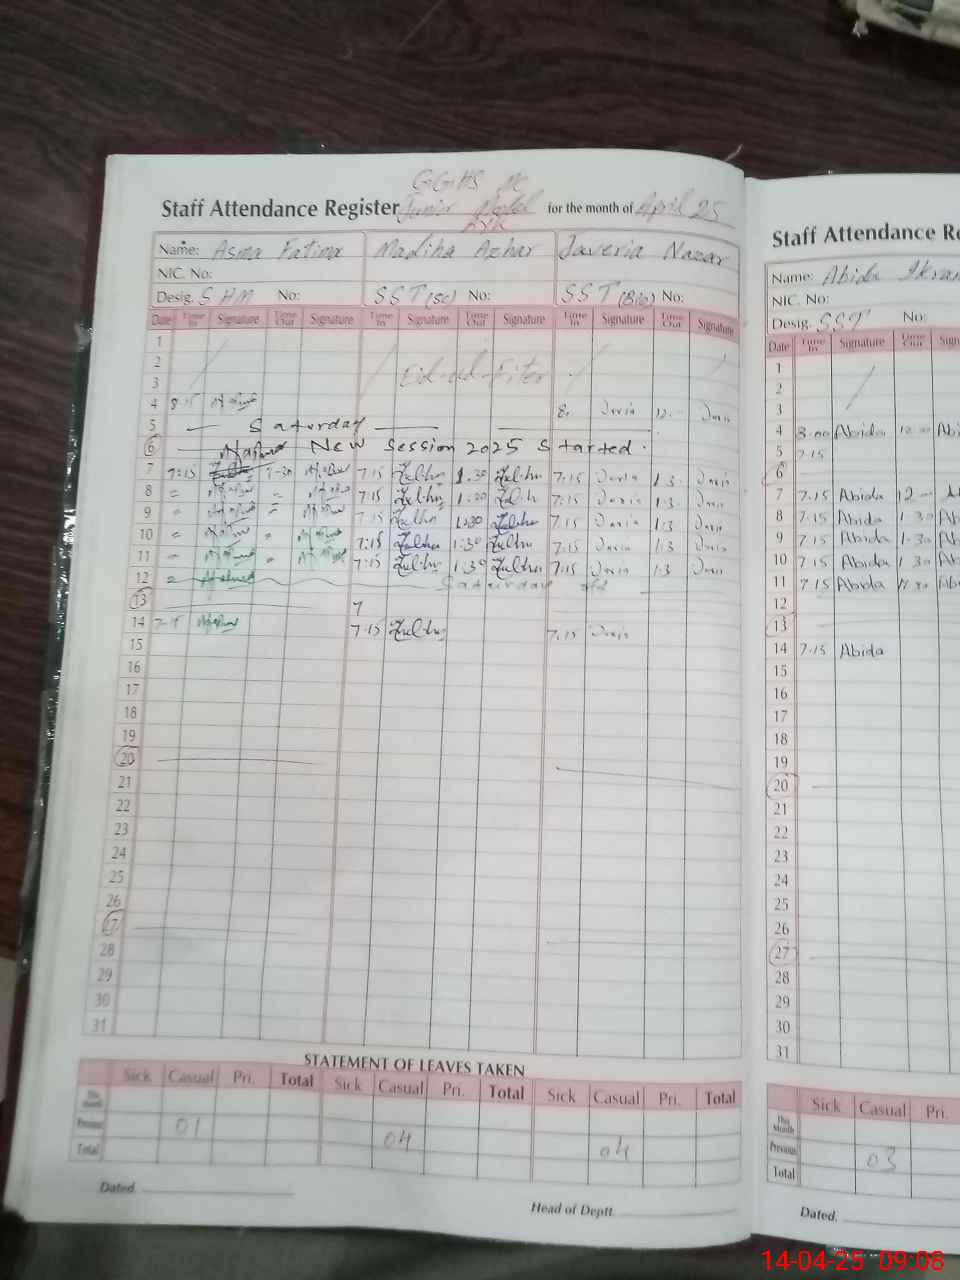 GGHS MC
Staff Attendance Register Junior Model for the month of April 25
Name: Asma Fatima Madiha Azhar Javeria Nazar
NIC. No:
Desig. SHM No: SST (Sc) No: SST (Bio) No:
Date Time In Signature Time Out Signature Time In Signature Time Out Signature Time In Signature Time Out Signature
1
2
3 Eid-ul-Fiter
4 8:15 8. 12.
5 Saturday
6 New Session 2025 Started.
7 7:15 1-30 7.15 1.30 7.15 1.3
8 = = 7.15 1:30 7.15 1.3
9 = = 7.15 1:30 7.15 1.3
10 = = 7:15 1:30 7.15 1.3
11 = = 7:15 1:30 7.15 1.3
12 = Saturday off
13 7
14 7.15 7.15 7.15
15
16
17
18
19
20
21
22
23
24
25
26
27
28
29
30
31
STATEMENT OF LEAVES TAKEN
Sick Casual Pri. Total Sick Casual Pri. Total Sick Casual Pri. Total
This month
Previous 01 04 04
Total
Dated.
Head of Deptt.
Staff Attendance Re
Name: Abida Ikram
NIC. No:
Desig. SST No:
Date Time In Signature Time Out Sign
1
2
3
4 8.00 Abida 12.00 Abi
5 7.15
6
7 7.15 Abida 12
8 7.15 Abida 1.30 Ab
9 7.15 Abida 1.30 Ab
10 7.15 Abida 1.30 Ab
11 7.15 Abida 11.30 Ab
12
13
14 7.15 Abida
15
16
17
18
19
20
21
22
23
24
25
26
27
28
29
30
31
Sick Casual Pri.
This Month
Previous 03
Total
Dated.
14-04-25 09:08